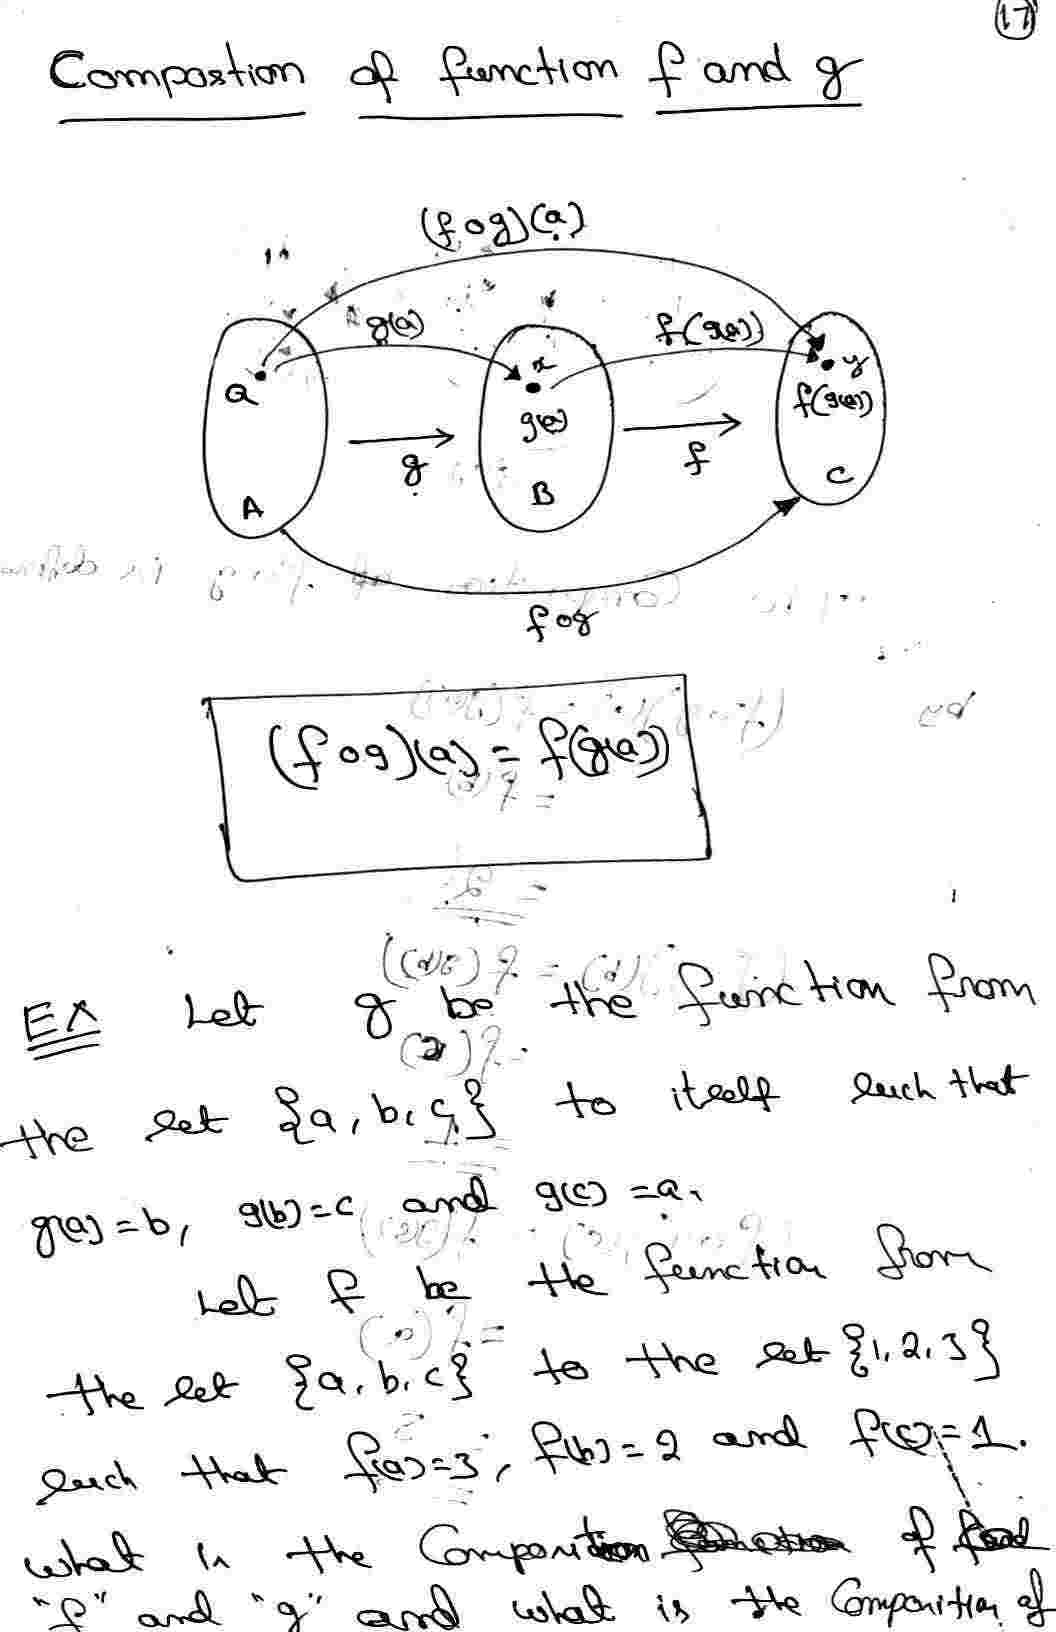 17
Compostion of function f and g
(fog)(a)
g(a)
f(g(a))
a
x
y
g(a)
f(g(a))
g
f
A
B
C
fog
(fog)(a) = f(g(a))
EX Let g be the function from
the set {a, b, c,} to itself such that
g(a) = b, g(b) = c and g(c) = a.
Let f be the function from
the set {a, b, c} to the set {1, 2, 3}
such that f(a) = 3, f(b) = 2 and f(c) = 1.
what is the Composition of
"f" and "g" and what is the Composition of